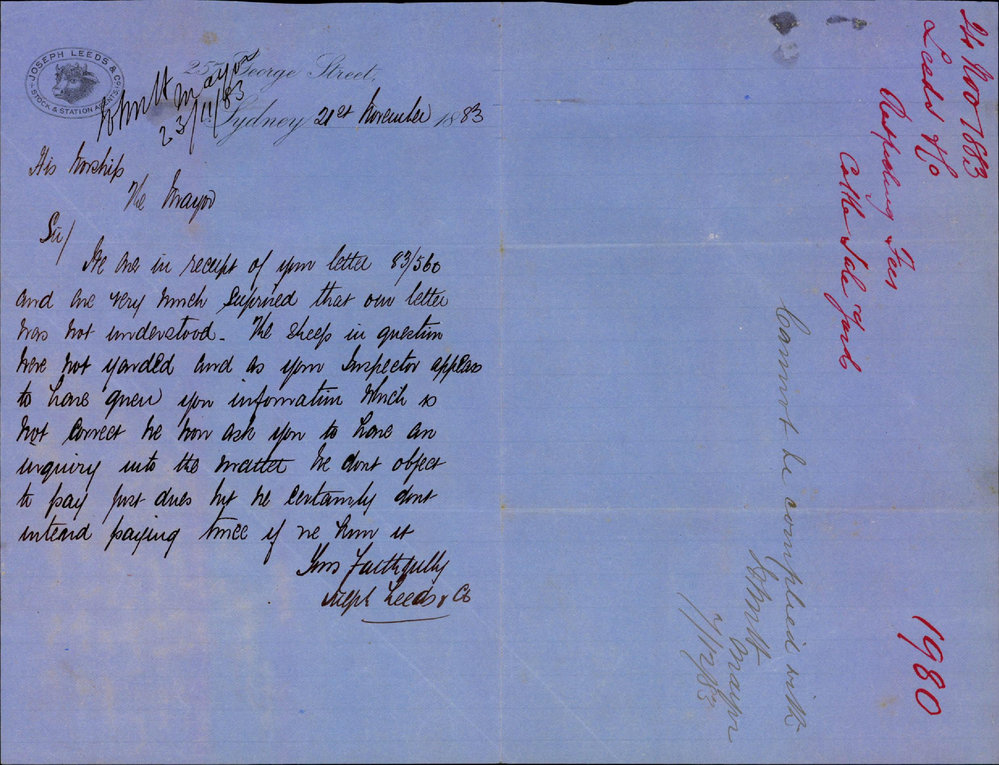 JOSEPH LEEDS & Co
STOCK & STATION AGENTS
George Street,
Mayor
23/11/83
Sydney 21st November 1883
His Worship
The Mayor
Sir/
We are in receipt of your letter 83/560
and are very much suprised that our letter
was not understood. The sheep in question
were not yarded and as your Inspector appears
to have given you information which is
not correct we now ask you to have an
inquiry into the matter We dont object
to pay just dues but we certainly dont
intend paying twice if we know it
Yours Faithfully
Joseph Leeds & Co
24 Nov 1883
Leeds & Co
Respecting Fees
Cattle Sale Yards
Cannot be complied with
Mayor
7/12/83
1980